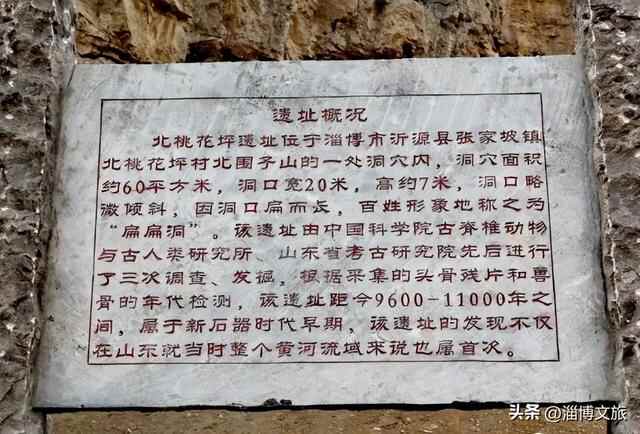 遗址概况
北桃花坪遗址位于淄博市沂源县张家坡镇
北桃花坪村北围子山的一处洞穴内，洞穴面积
约60平方米，洞口宽20米，高约7米，洞口略
微倾斜，因洞口扁而长，百姓形象地称之为
“扁扁洞”。该遗址由中国科学院古脊椎动物
与古人类研究所、山东省考古研究院先后进行
了三次调查、发掘，根据采集的头骨残片和兽
骨的年代检测，该遗址距今9600-11000年之
间，属于新石器时代早期，该遗址的发现不仅
在山东就当时整个黄河流域来说也属首次。
头条 @淄博文旅